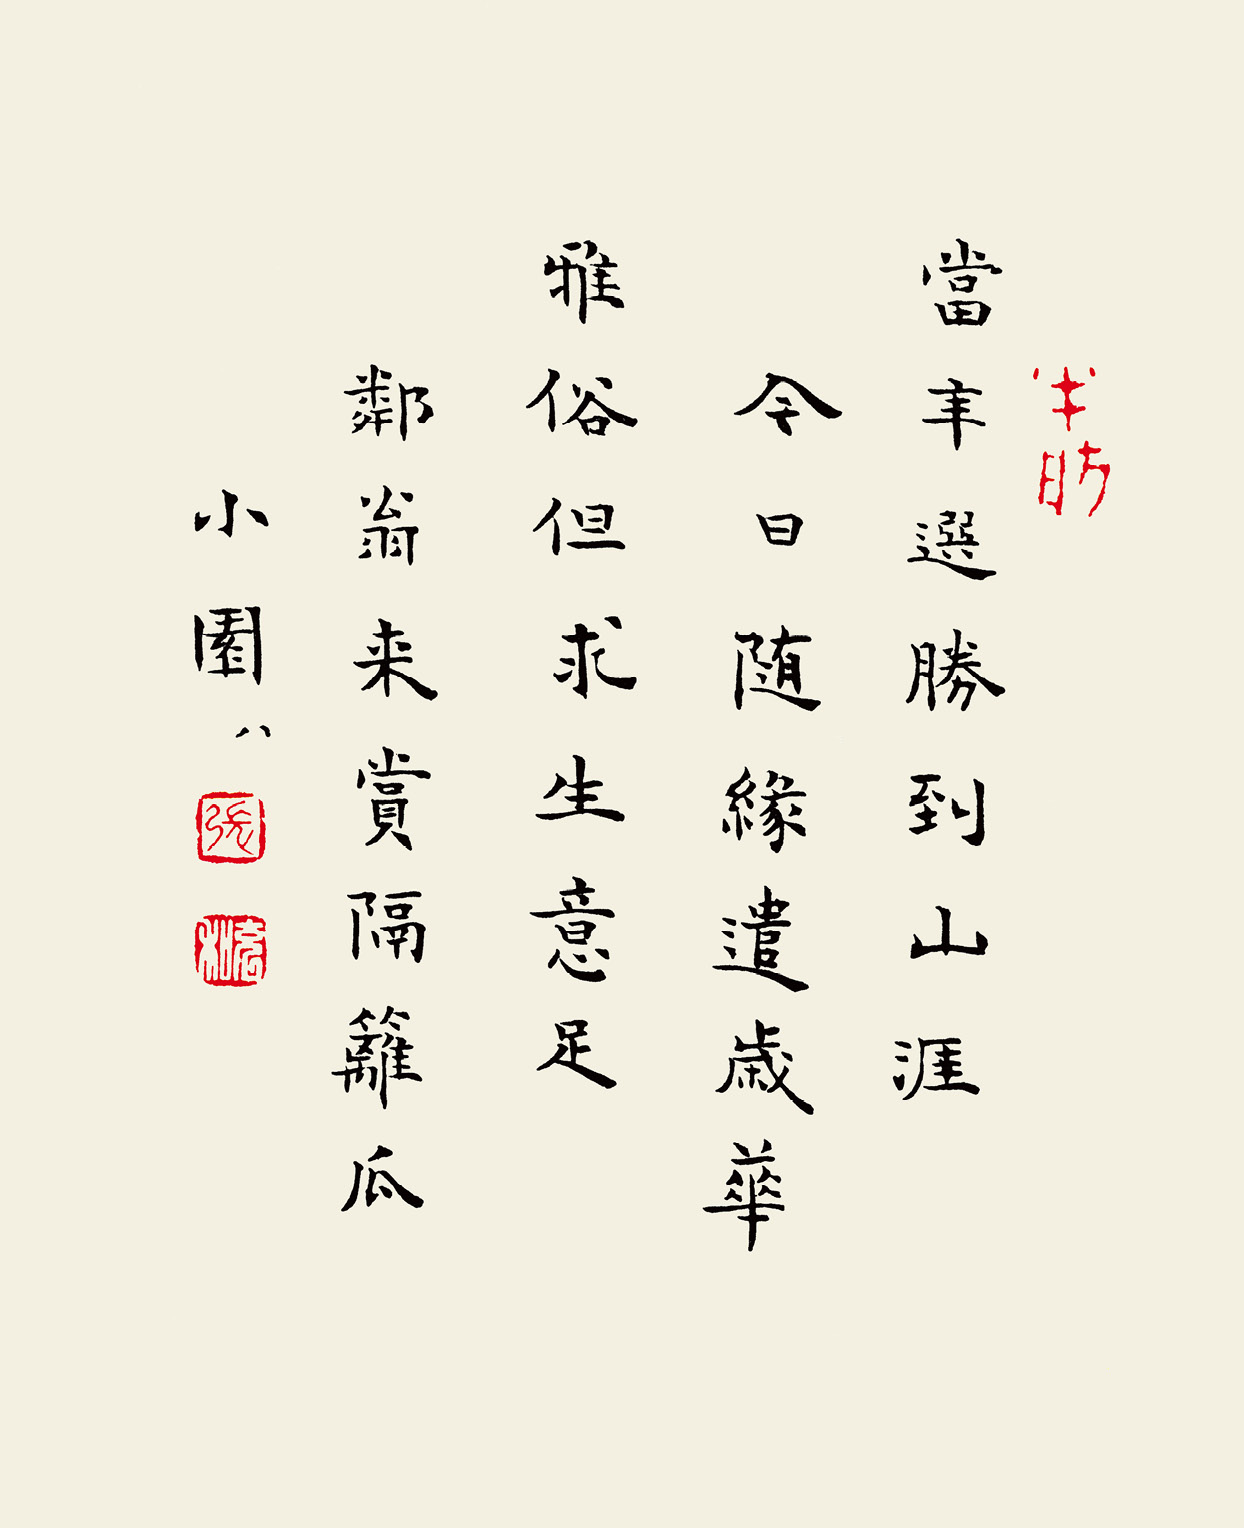 當年選勝到山涯
今日随緣遣歳華
雅俗但求生意足
鄰翁来賞隔籬瓜
小園 八